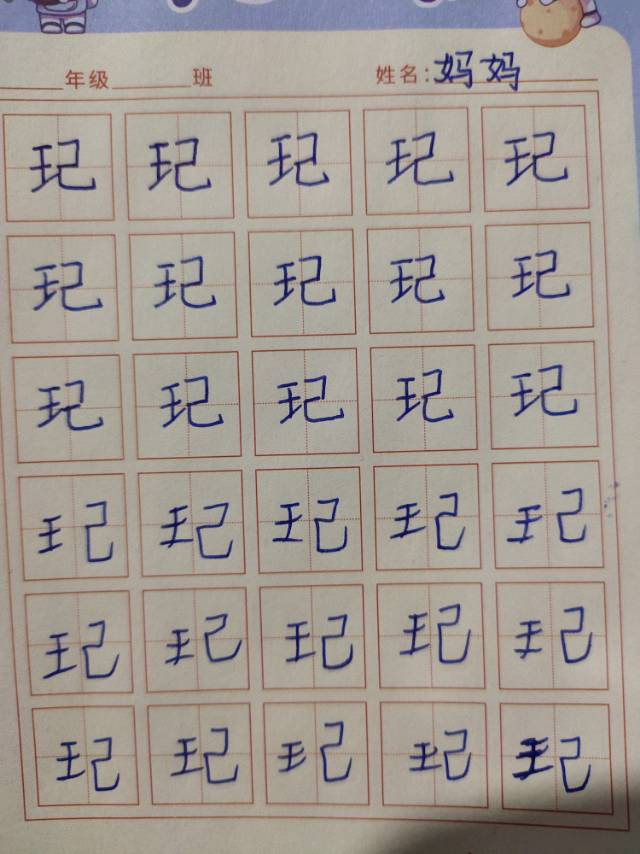 年级 班 姓名：妈妈
玘 玘 玘 玘 玘
玘 玘 玘 玘 玘
玘 玘 玘 玘 玘
玘 玘 玘 玘 玘
玘 玘 玘 玘 玘
玘 玘 玘 玘 玘